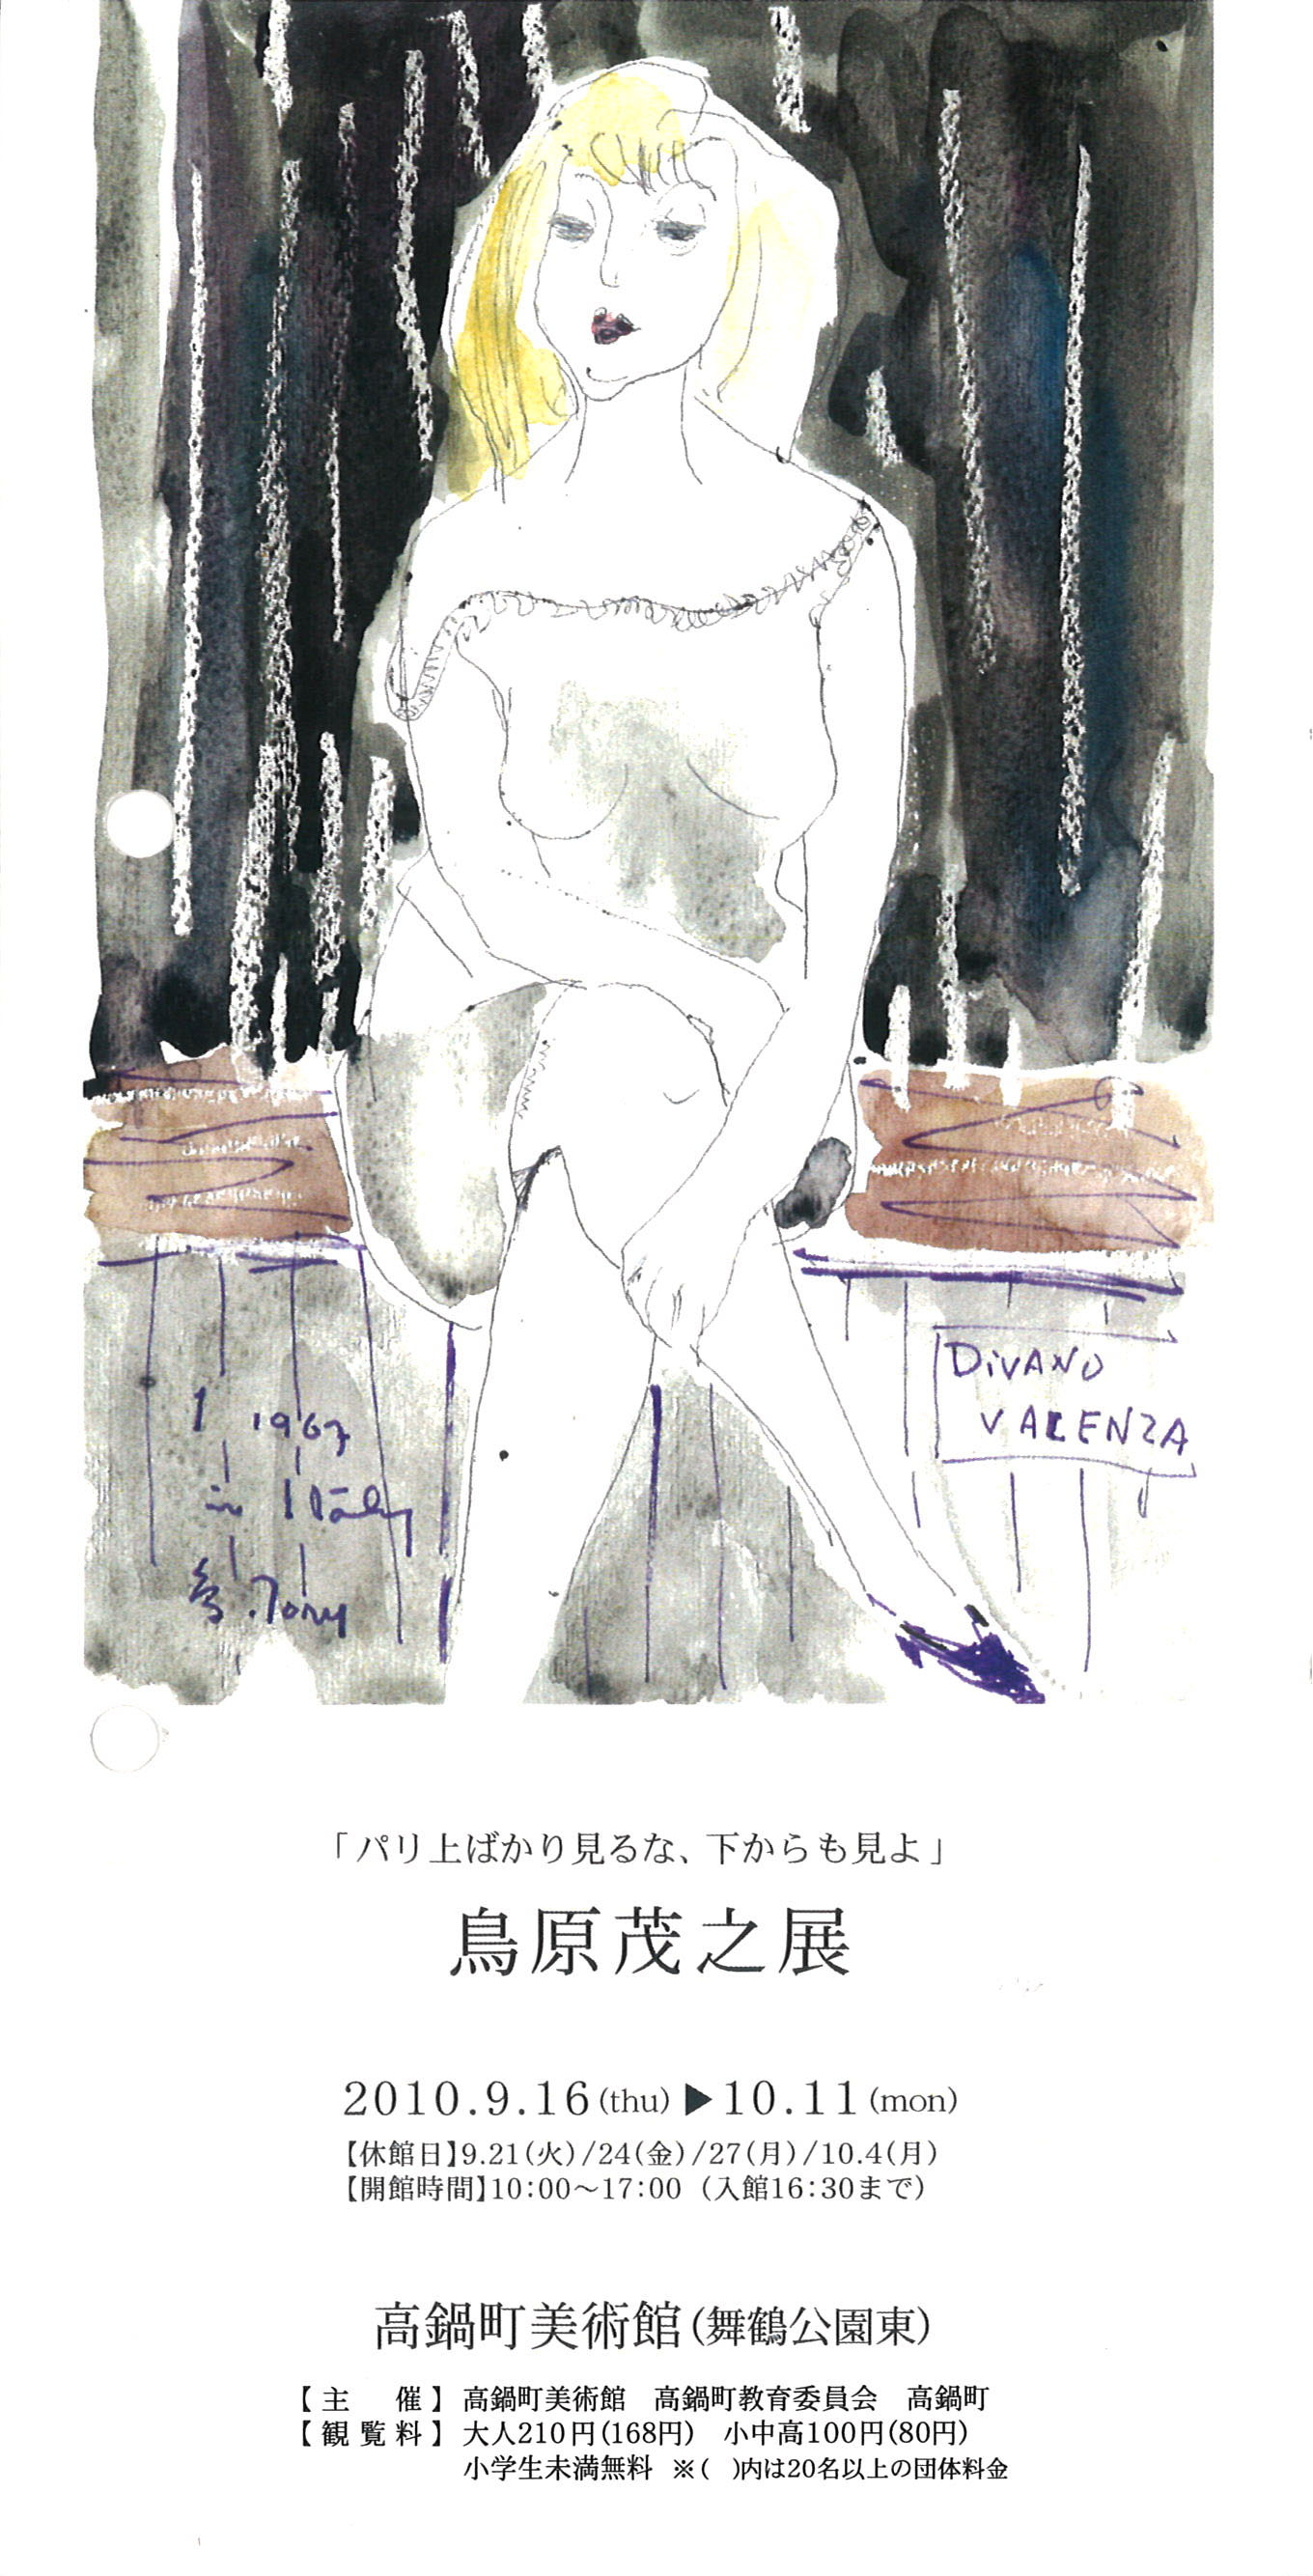 DiVANO
VALENZA
1967
in Italy
「パリ上ばかり見るな、下からも見よ」
鳥原茂之展
2010.9.16(thu)▶10.11(mon)
【休館日】9.21(火)/24(金)/27(月)/10.4(月)
【開館時間】10:00～17:00 (入館16:30まで)
高鍋町美術館(舞鶴公園東)
【主 催】高鍋町美術館 高鍋町教育委員会 高鍋町
【観覧料】大人210円(168円) 小中高100円(80円)
小学生未満無料 ※( )内は20名以上の団体料金